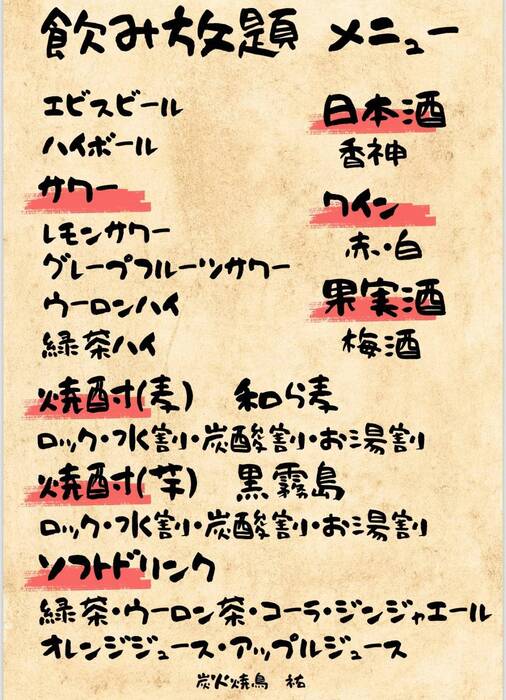 飲み放題 メニュー
エビスビール
ハイボール
サワー
レモンサワー
グレープフルーツサワー
ウーロンハイ
緑茶ハイ
日本酒
香神
ワイン
赤・白
果実酒
梅酒
焼酎(麦) 和ら麦
ロック・水割・炭酸割・お湯割
焼酎(芋) 黒霧島
ロック・水割・炭酸割・お湯割
ソフトドリンク
緑茶・ウーロン茶・コーラ・ジンジャエール
オレンジジュース・アップルジュース
炭火焼鳥 祐